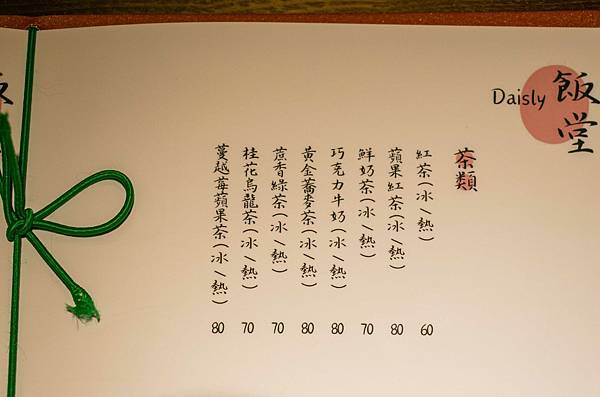 Daisly 飯堂
茶類
紅茶(冰/熱) 60
蘋果紅茶(冰/熱) 80
鮮奶茶(冰/熱) 70
巧克力牛奶(冰/熱) 80
黃金蕎麥茶(冰/熱) 80
茴香綠茶(冰/熱) 70
桂花烏龍茶(冰/熱) 70
蔓越莓蘋果茶(冰/熱) 80